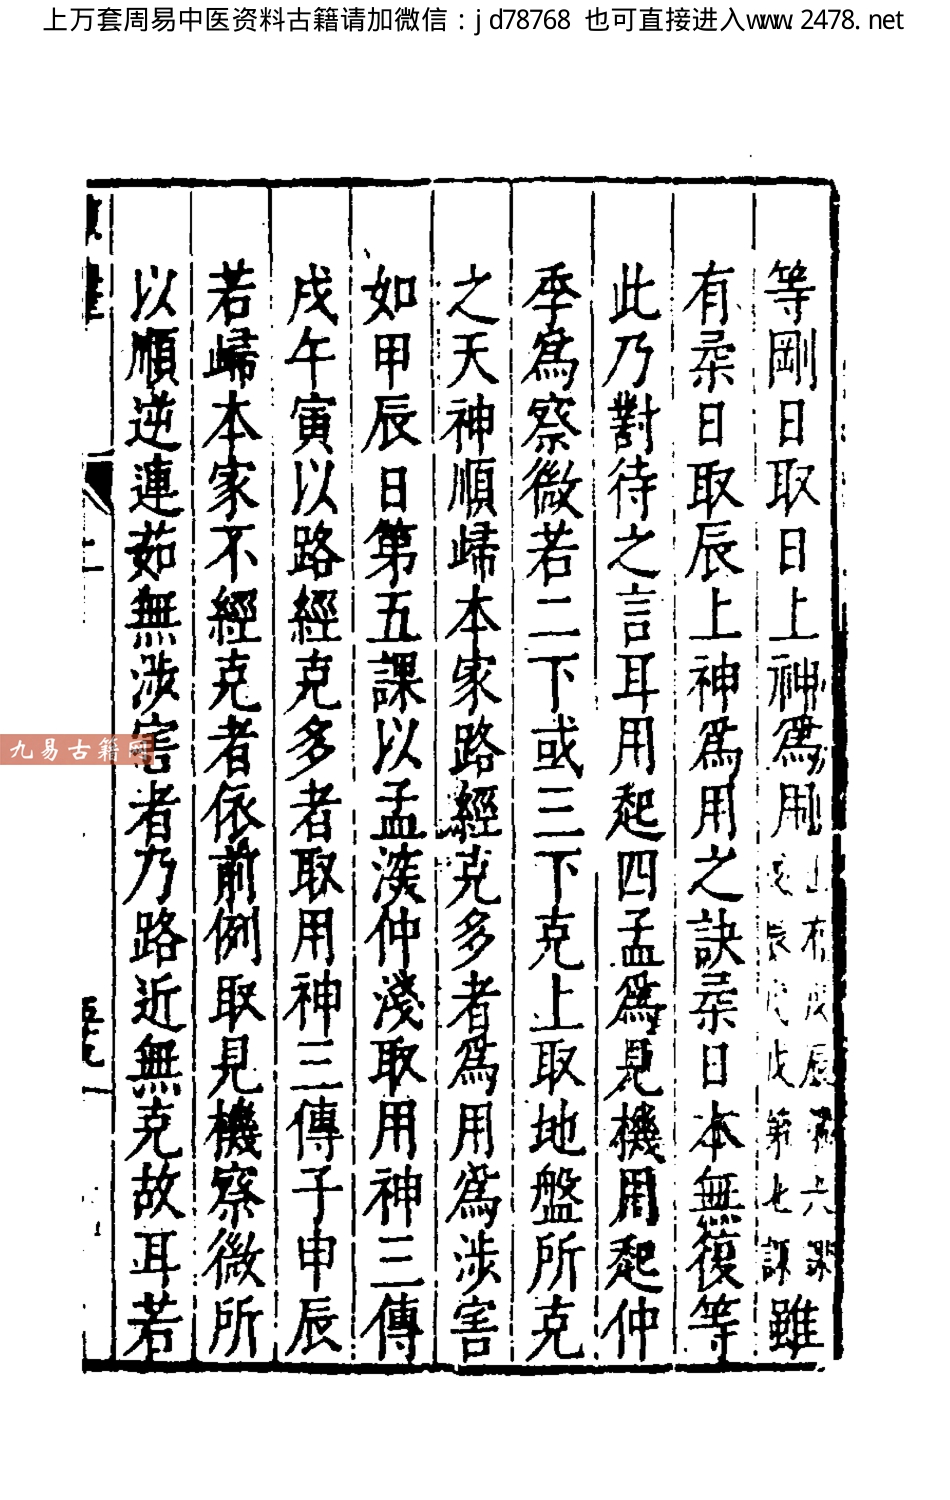 上万套周易中医资料古籍请加微信：jd78768 也可直接进入www.2478.net
等剛日取日上神爲用止有戊辰第六課戊辰戊戌第七課雖
有柔日取辰上神爲用之訣柔日本無復等
此乃對待之言耳用起四孟爲見機用起仲
季爲察微若二下或三下克上取地盤所克
之天神順歸本家路經克多者爲用爲涉害
如甲辰日第五課以孟深仲淺取用神三傳
戌午寅以路經克多者取用神三傳子申辰
若歸本家不經克者依前例取見機察微所
以順逆連茹無涉害者乃路近無克故耳若
九易古籍网